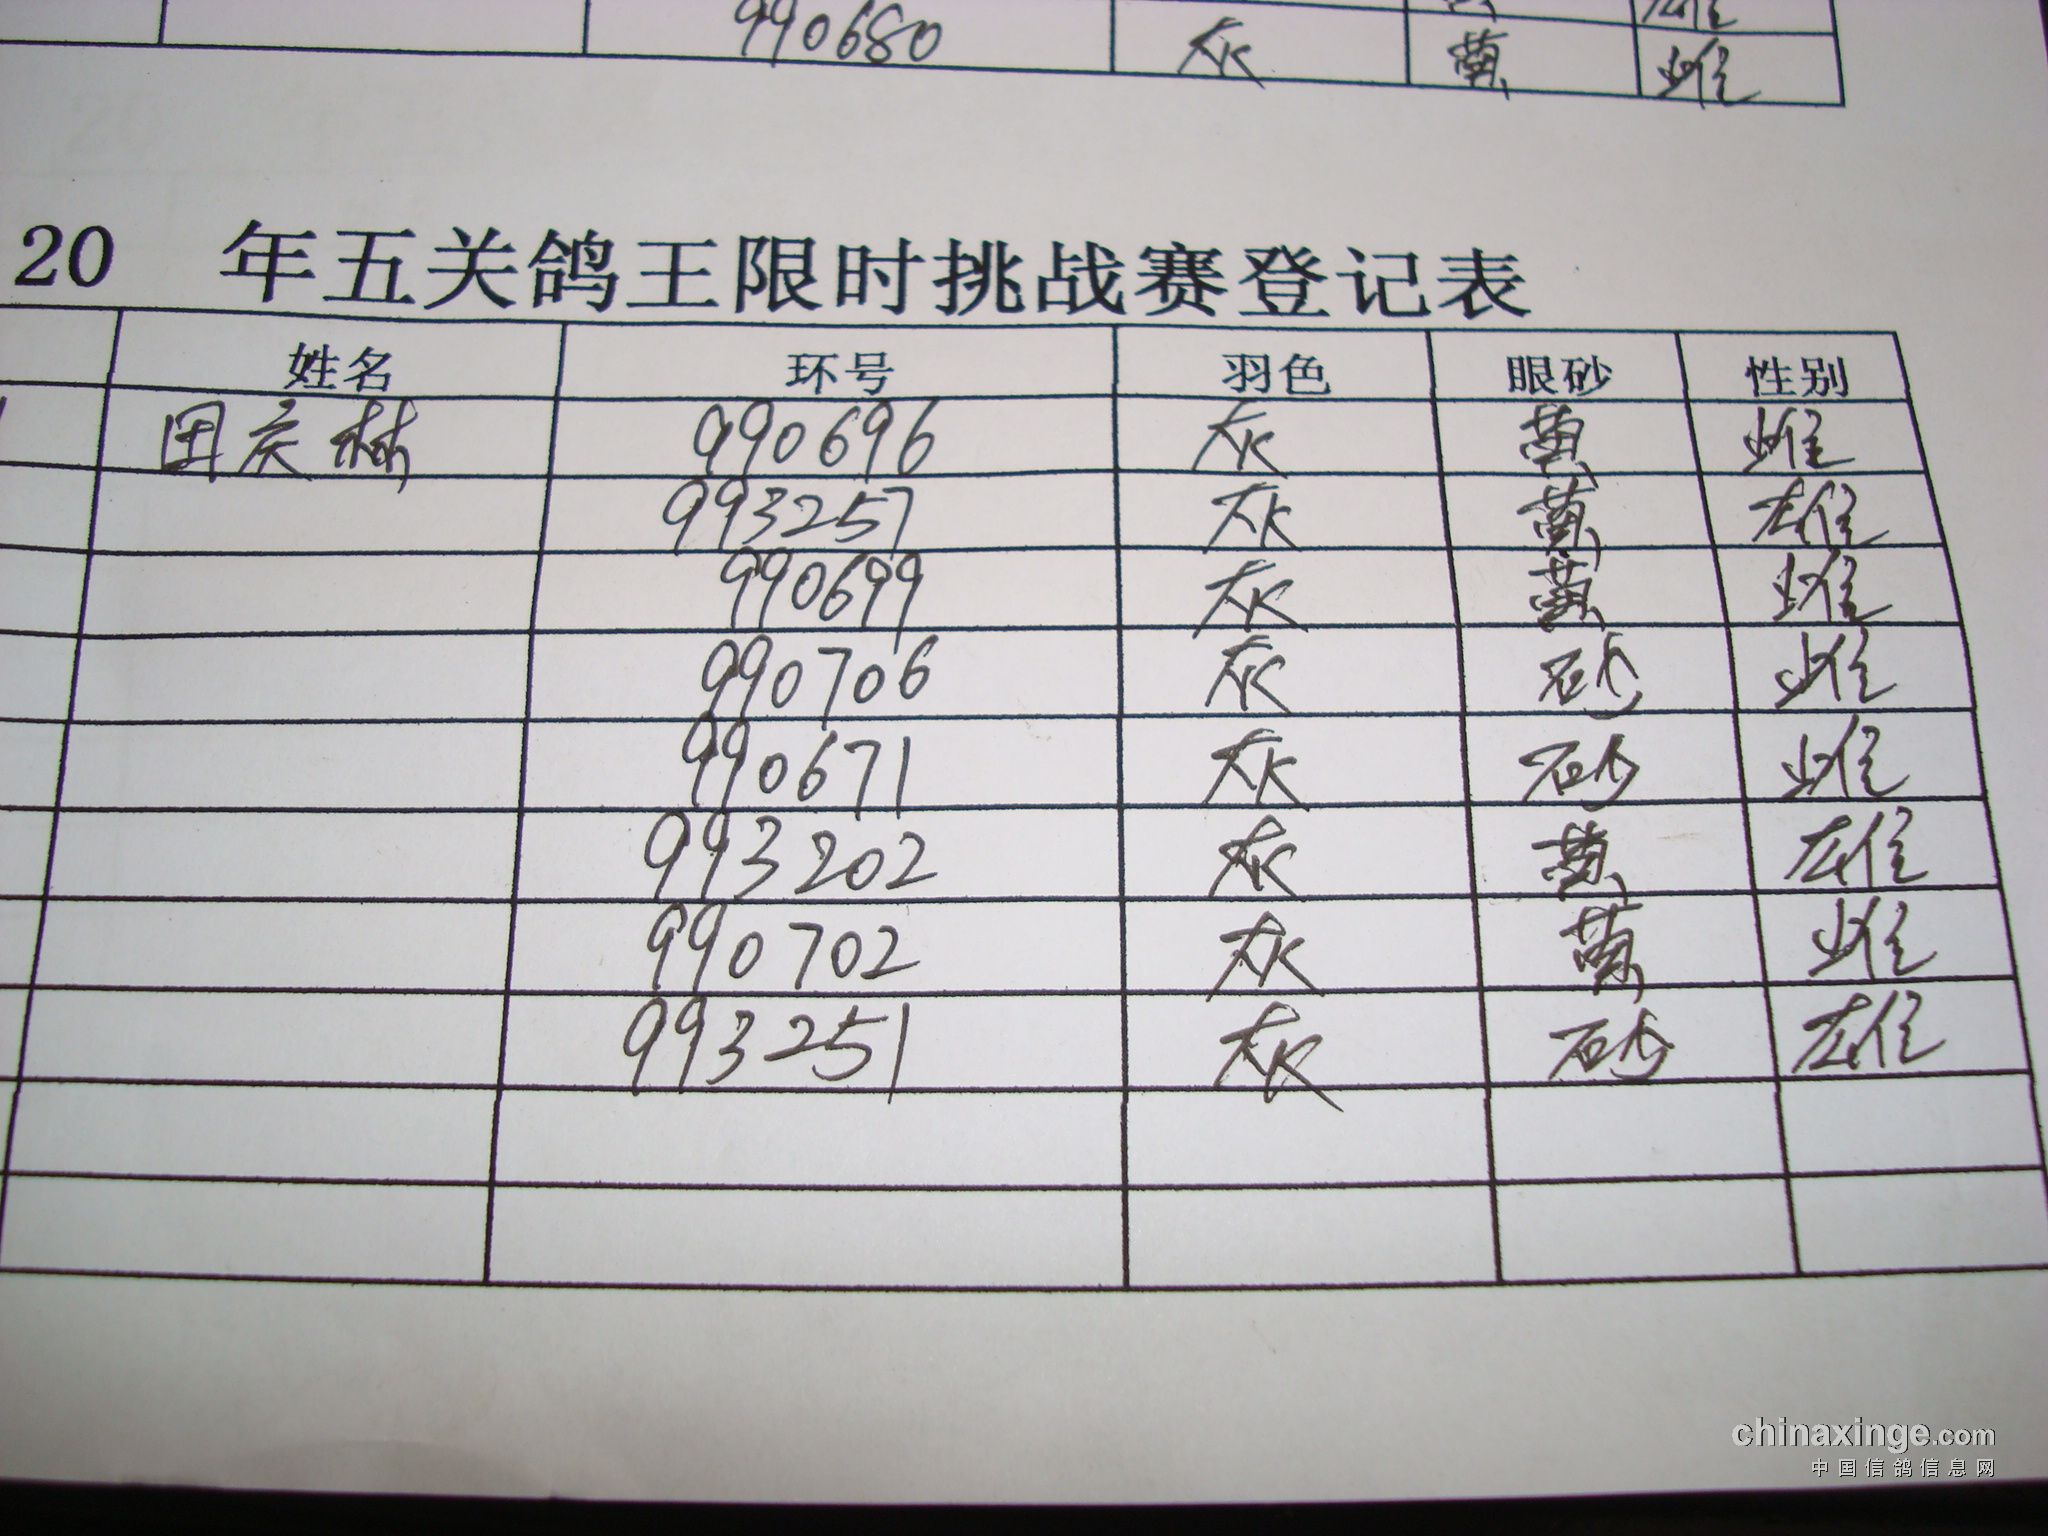 990680 灰 黄 雌
20 年五关鸽王限时挑战赛登记表
姓名 环号 羽色 眼砂 性别
田庆林 990696 灰 黄 雌
993257 灰 黄 雄
990699 灰 黄 雌
990706 灰 砂 雌
990671 灰 砂 雌
993202 灰 黄 雄
990702 灰 黄 雌
993251 灰 砂 雄
chinaxinge.com
中国信鸽信息网